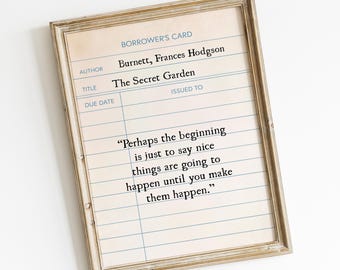 BORROWER'S CARD
AUTHOR Burnett, Frances Hodgson
TITLE The Secret Garden
DUE DATE ISSUED TO
“Perhaps the beginning
is just to say nice
things are going to
happen until you make
them happen.”